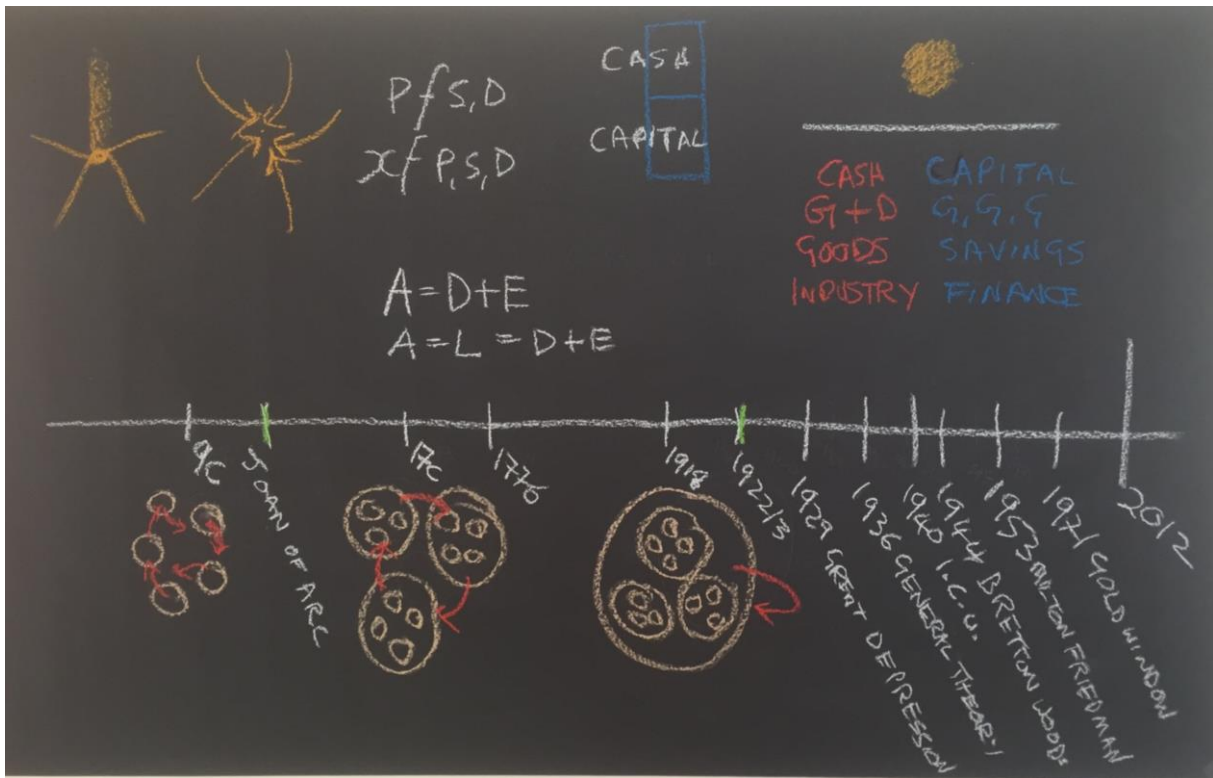 P f S, D
x f P, S, D
CASH
CAPITAL
CASH CAPITAL
G+D G, G, G
GOODS SAVINGS
INDUSTRY FINANCE
A = D+E
A = L = D+E
9C
JOAN OF ARC
17C
1776
1918
1922/3
1929 GREAT DEPRESSION
1936 GENERAL THEORY
1940 I.C.U.
1944 BRETTON WOODS
1953 MILTON FRIEDMAN
1971 GOLD WINDOW
2012